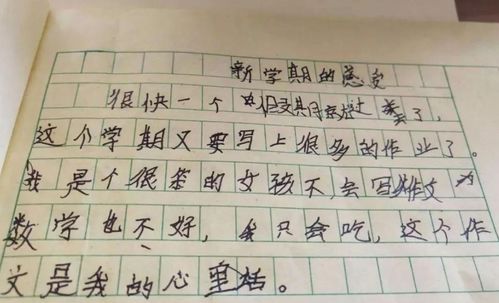 新学期的感受
很快一个假期就过美了,
这个学期又要写上很多的作业了。
我是个很笨的女孩不会写作文
数学也不好,我只会吃,这个作
文是我的心里话。